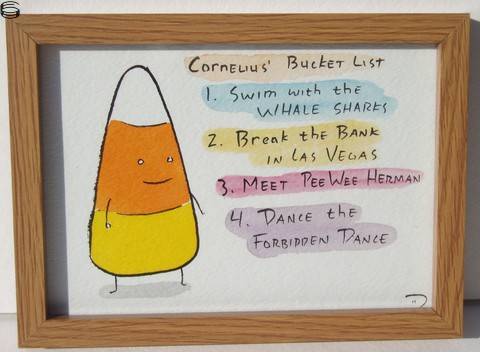 Cornelius' Bucket List
1. Swim with the
Whale Sharks
2. Break the Bank
in Las Vegas
3. Meet PeeWee Herman
4. Dance the
Forbidden Dance